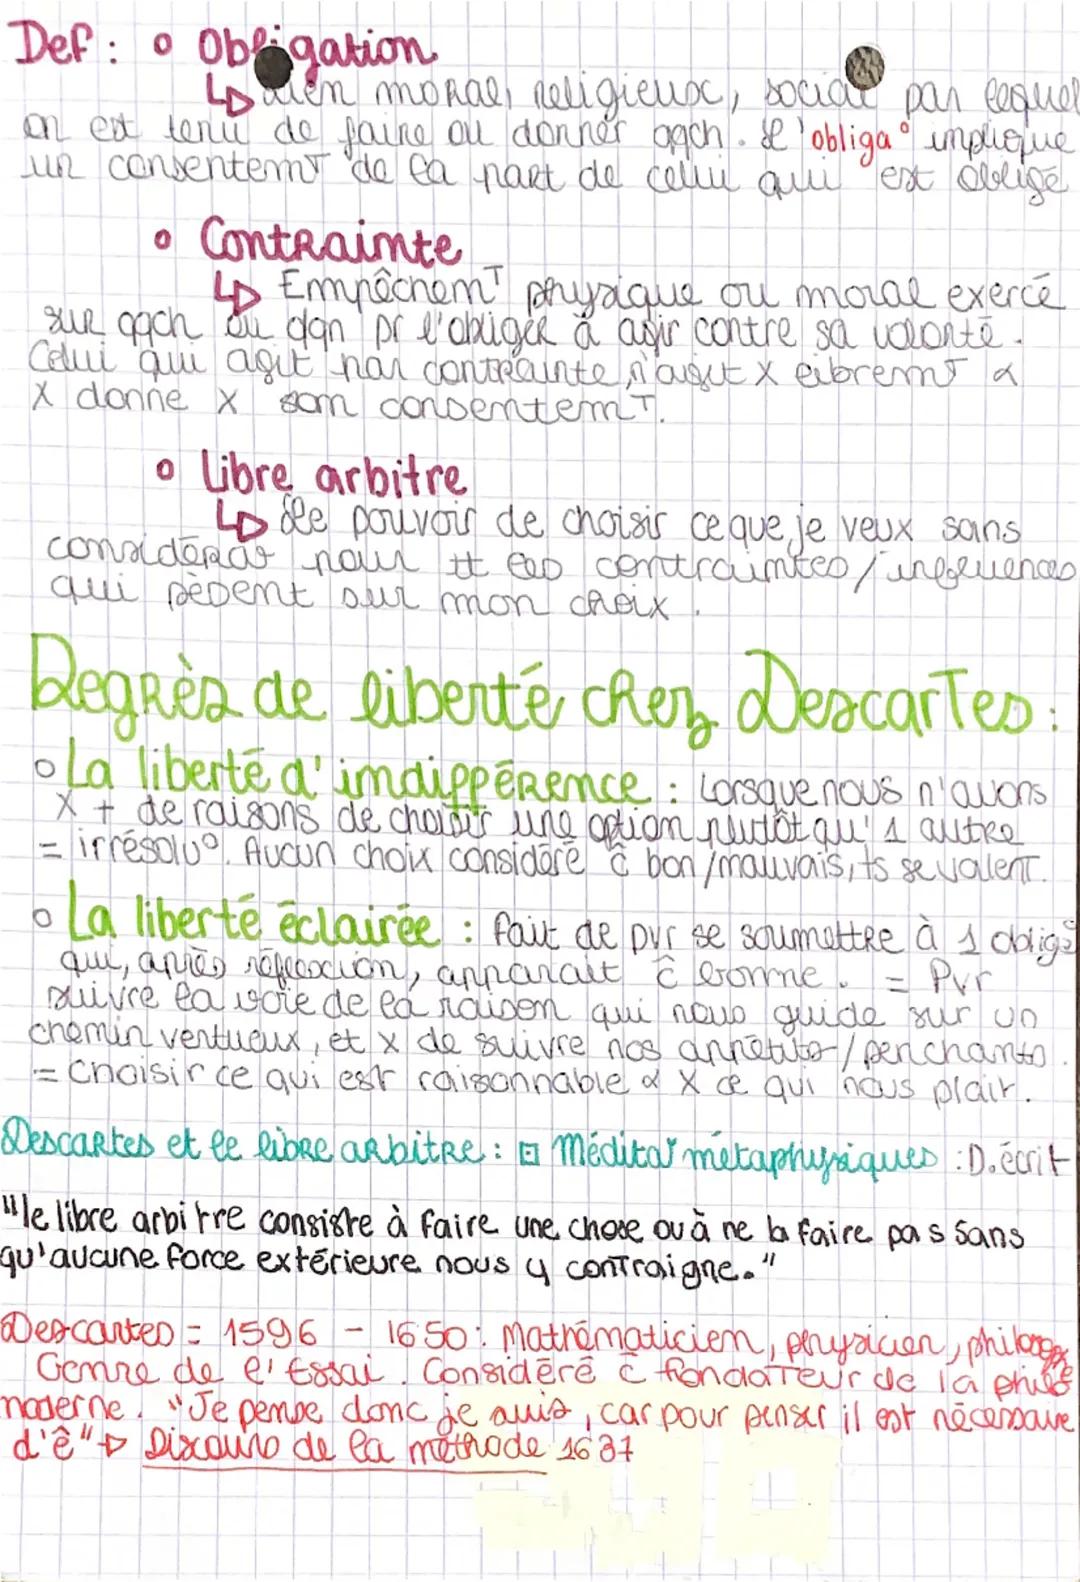 Def : o Obligation
↳ Lien moral, religieux, social par lequel
on est tenu de faire ou donner qqch. L'obliga° implique
un consentemT de la part de celui qui est obligé
o Contrainte
↳ EmpêchemT physique ou moral exercé
sur qqch ou qqn pr l'obliger à agir contre sa volonté.
Celui qui agit par contrainte, n'agit X libremT &
X donne X son consentemT.
o Libre arbitre
↳ Le pouvoir de choisir ce que je veux sans
considérer pour tt les contraintes/influences
qui pèsent sur mon choix.
Degrès de liberté chez Descartes :
o La liberté d'indifférence : Lorsque nous n'avons
X + de raisons de choisir une option plutôt qu'1 autre
= irrésolu°. Aucun choix considéré ĉ bon/mauvais, ts se valent.
o La liberté éclairée : fait de pvr se soumettre à 1 oblig°
qui, après réflexion, apparait ĉ bonne. = Pvr
suivre la voie de la raison qui nous guide sur un
chemin vertueux, et X de suivre nos appétits/penchants.
= Choisir ce qui est raisonnable & X ce qui nous plair.
Descartes et le libre arbitre : Médita° métaphysiques : D. écrit
"le libre arbitre consiste à faire une chose ou à ne la faire pas sans
qu'aucune force extérieure nous y contraigne."
Descartes = 1596 - 1650 : Mathématicien, physicien, philosophe
Genre de l'Essai. Considéré ĉ fondateur de la philo
moderne. "Je pense donc je suis, car pour penser il est nécessaire
d'ê" → Discours de la méthode 1637